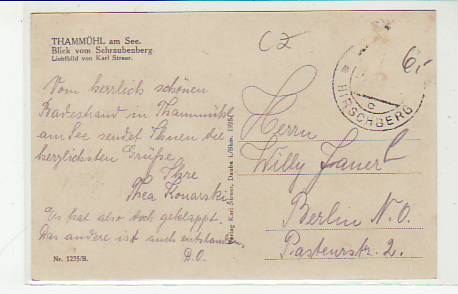 THAMMÜHL am See.
Blick vom Schraubenberg.
Lichtbild von Karl Streer.
Vom herrlich schönen
Badestrand in Thammühl
am See sendet Ihnen die
herzlichsten Grüße
Ihre
Thea Konarski
Es hat also doch geklappt.
Das andere ist auch entstanden.
D.O.
Nr. 1235/B.
Verlag Karl Streer, Dauba i./Bhm.
CZ
HIRSCHBERG
C
6,-
Herrn
Willy
Berlin N.O.
Pasteurstr. 2.